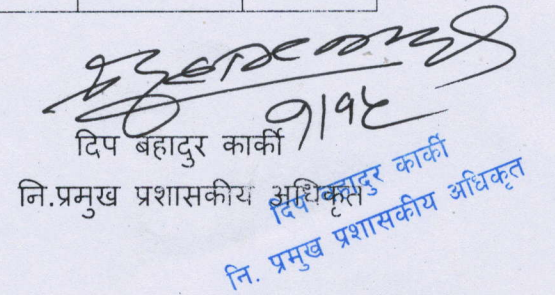 १/१५
दिप बहादुर कार्की
नि.प्रमुख प्रशासकीय अधिकृत
दिप बहादुर कार्की
नि. प्रमुख प्रशासकीय अधिकृत